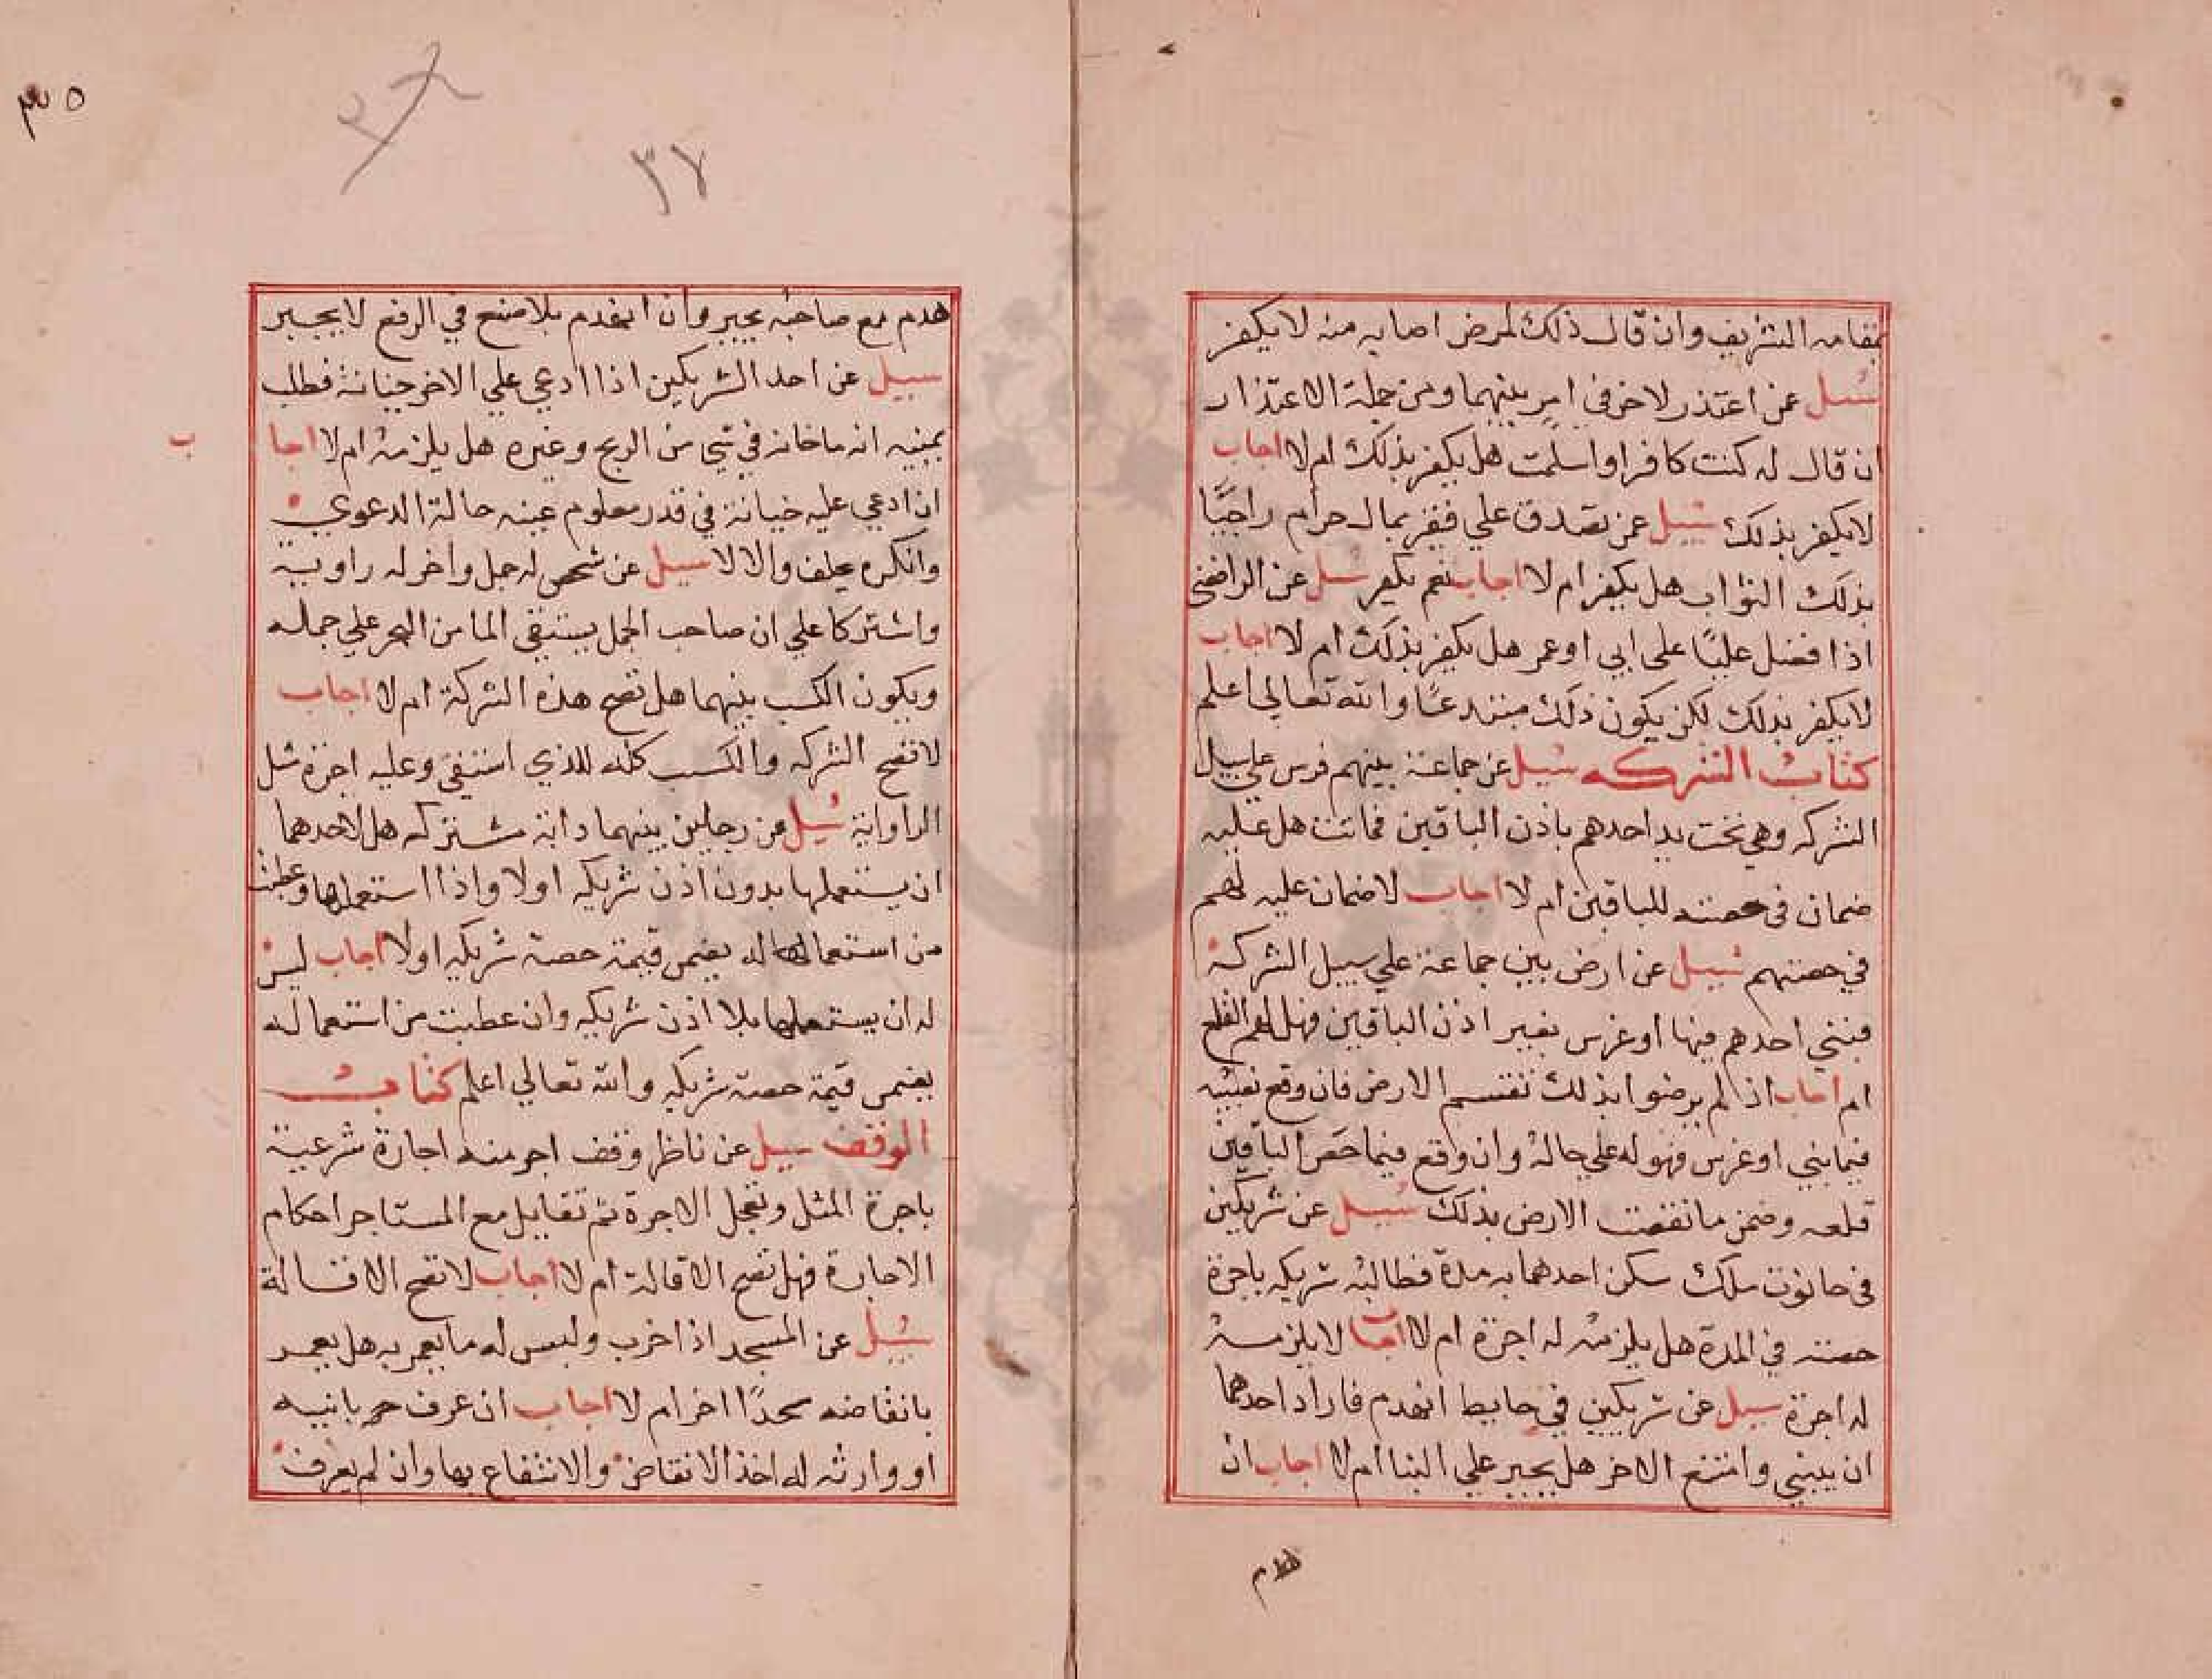 بمقامه الشريف وان قال ذلك لمرض اصابه منه لا يكفر
سيل عمن اعتذر لاخر في امر بينهما ومن جملة الاعتذار
ان قال له كنت كافرا واسلمت هل يكفر بذلك ام لا اجاب
لا يكفر بذلك سيل عمن تصدق علي فقير بمال حرام راجيًا
بذلك الثواب هل يكفر ام لا اجاب نعم يكفر سيل عن الرافضي
اذا فضل عليًا على ابي او عمر هل يكفر بذلك ام لا اجاب
لا يكفر بذلك لكن يكون ذلك مبتدعًا والله تعالي اعلم
كتاب الشركه سيل عن جماعة بينهم فرس علي سبيل
الشركه وهي تحت يد احدهم باذن الباقين فماتت هل عليه
ضمان في حصته للباقين ام لا اجاب لا ضمان عليه لهم
في حصتهم سيل عن ارض بين جماعة علي سبيل الشركة
فبني احدهم فيها او غرس بغير اذن الباقين فهل لهم القلع
ام اجاب اذا لم يرضوا بذلك تقتسم الارض فان وقع نصيبه
فيما بني او غرس فهو له علي حاله وان واقع فيما حص الباقين
قلعه وضمن ما نقصت الارض بذلك سيل عن شريكين
في حانوت ملك سكن احدهما به مدة فطالبه شريكه باجرة
حصته في المدة هل يلزمه له اجرة ام لا اجاب لا يلزمه
له اجرة سيل عن شريكين في حايط انهدم فاراد احدهما
ان يبني وامتنع الاخر هل يجبر علي البنا ام لا اجاب ان
هدم
٣٥
٣٧
هدم مع صاحبه يجبر وان انهدم بلا صنع في الرفع لا يجبر
سيل عن احد الشريكين اذا ادعي علي الاخر خيانة فطلب
يمينه انه ما خانه في شي من الربح وغيره هل يلزمه ام لا اجا
ب
ان ادعي عليه خيانة في قدر معلوم عينه حالة الدعوي
وانكره يحلف والا لا سيل عن شخص له جمل واخر له راوية
واشتركا علي ان صاحب الجمل يستقي الما من البحر علي جمله
ويكون الكسب بينهما هل تصح هذه الشركة ام لا اجاب
لا تصح الشركه والكسب كله للذي استقي وعليه اجرة مثل
الراواية سيل عن رجلين بينهما دابة مشتركه هل لاحدهما
ان يستعملها بدون اذن شريكه او لا واذا استعملها وعطبت
من استعماله له يضمن قيمة حصة شريكه او لا اجاب ليس
له ان يستعملها بلا اذن شريكه وان عطبت من استعماله
يضمن قيمة حصة شريكه والله تعالي اعلم كتاب
الوقف سيل عن ناظر وقف اجر منه اجارة شرعية
باجرة المثل وتعجل الاجرة ثم تقايل مع المستاجر احكام
الاجارة فهل تصح الاقالة ام لا اجاب لا تصح الاقالة
سيل عن المسجد اذا خرب وليس له ما يعمر به هل يعمر
بانقاضه مسجدًا اخر ام لا اجاب ان عرف بانيه
او وارثه له اخذ الانقاض والانتفاع بها وان لم يعرف